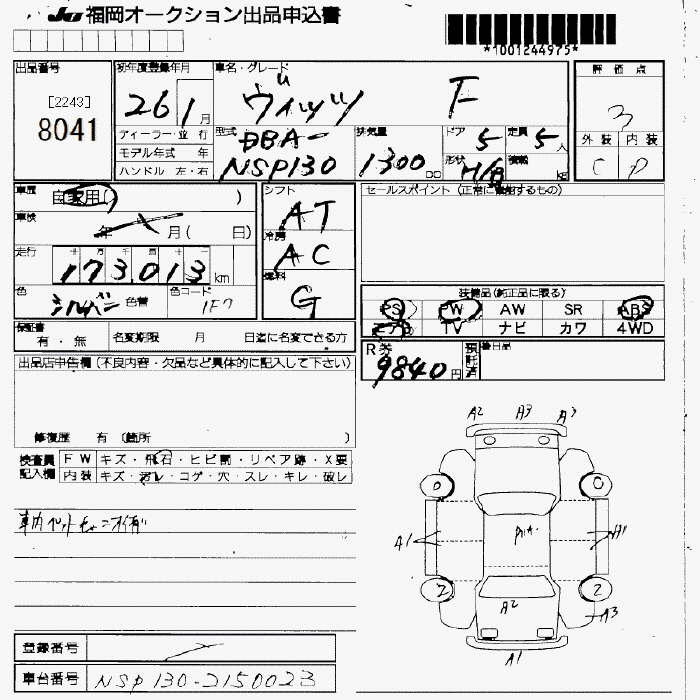 JU 福岡オークション出品申込書
*1001244975*
出品番号
[2243]
8041
初年度登録年月
26 1 月
ディーラー・並行
モデル年式 年
ハンドル 左・右
車名・グレード
ヴィッツ F
型式
DBA-
NSP130
排気量
1300 cc
ドア 5
定員 5 人
形状 H/B
積載 kg
評価点
3
外装 内装
C D
車歴
自家用( )
車検
年 月( 日)
走行
173,013 km
色
シルバー
色替
色コード
1F7
シフト
AT
冷房
AC
燃料
G
セールスポイント (正常に機能するもの)
装備品(純正品に限る)
PS PW AW SR ABS
TV ナビ カワ 4WD
保証書
有・無
名変期限 月 日迄に名変できる方
R券
9840円
預託済
後日品
出品店申告欄(不良内容・欠品など具体的に記入して下さい)
修復歴 有 (箇所 )
検査員
記入欄
FW キズ・飛石・ヒビ割・リペア跡・X要
内装 キズ・汚レ・コゲ・穴・スレ・キレ・破レ
A2 A3 A3
0 0
A1 A1
2 2
A2 A3
A1
登録番号
車台番号
NSP130-2150023